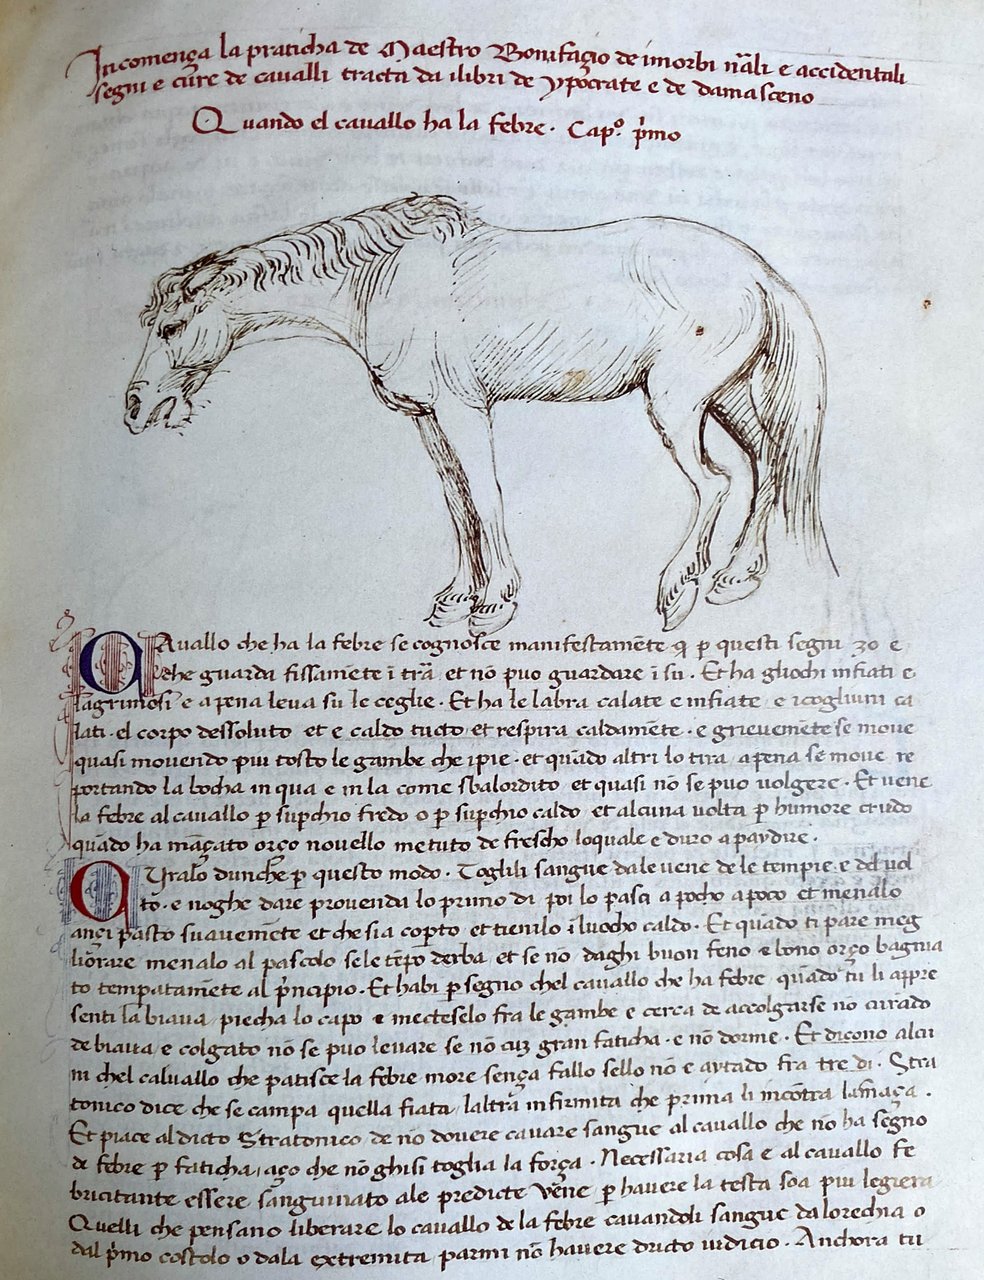 Incomença la praticha de Maestro Bonifaçio de imorbi nãli e accidentali
segni e cure de cavalli tracta da ilibri de ypocrate e de damasceno
Quando el cavallo ha la febre · Cap.º p̃mo
QAvallo che ha la febre se cognosce manifestamẽte q̨ p̱ questi segni zo e
che guarda fissamẽte ĩ trã et nõ puo guardare ĩ su · Et ha gliochi infiati e
lagrimosi e apena leva su le ceglie · Et ha le labra calate e infiate e icoglium ca
lati · el corpo dessoluto et e caldo tucto et respira caldamẽte · e grievemẽte se move
quasi movendo piu tosto le gambe che ipie · et quãdo altri lo tira apena se move re
portando la bocha in qua e in la come sbalordito et quasi nõ se puo volgere · Et vene
la febre al cavallo p̱ sup̱chio fredo o p̱ sup̱chio caldo et alcuna volta p̱ humore crudo
quãdo ha mãçato orço novello metuto de frescho loquale e duro apaydire ·
Curalo dunche p̱ questo modo · Toglili sangue dale vene de le tempie e del vol
to · e noghe dare provenda lo primo di poi lo pasci a pocho a poco et menalo
ançi pasto suavemẽte et che sia cop̱to et tienilo ĩ luocho caldo · Et quãdo ti pare meg
liorare menalo al pascolo se le tẽpo derba et se nõ daghi buon feno e bono orço bagnia
to tempatamẽte al p̃ncipio · Et habi p̱ segno chel cavallo che ha febre quãdo tu li appre
senti la biava piecha lo capo e mecteselo fra le gambe e cerca de accolgarse nõ curãdo
de biava e colgato nõ se puo levare se nõ cuz gran faticha · e nõ dorme · Et dicono alcu
ni chel calvallo che patisce la febre more sença fallo sello nõ e aytado fra tre di · Stra
tonico dice che se campa quella fiata laltra infirmita che prima li incõtra lamaça ·
Et piace al dicto Stratonico de nõ dovere cavare sangue al cavallo che nõ ha segno
de febre p̱ faticha aço che nõ ghisi toglia la força · Necessaria cosa e al cavallo fe
bricitante essere sanguinato ale predicte vene p̱ havere la testa soa piu legiera
Quelli che pensano liberare lo cavallo de la febre cavandoli sangue da lorechia o
dal p̃mo costolo o dala extremita parmi nõ havere dricto iudicio · Anchora tu